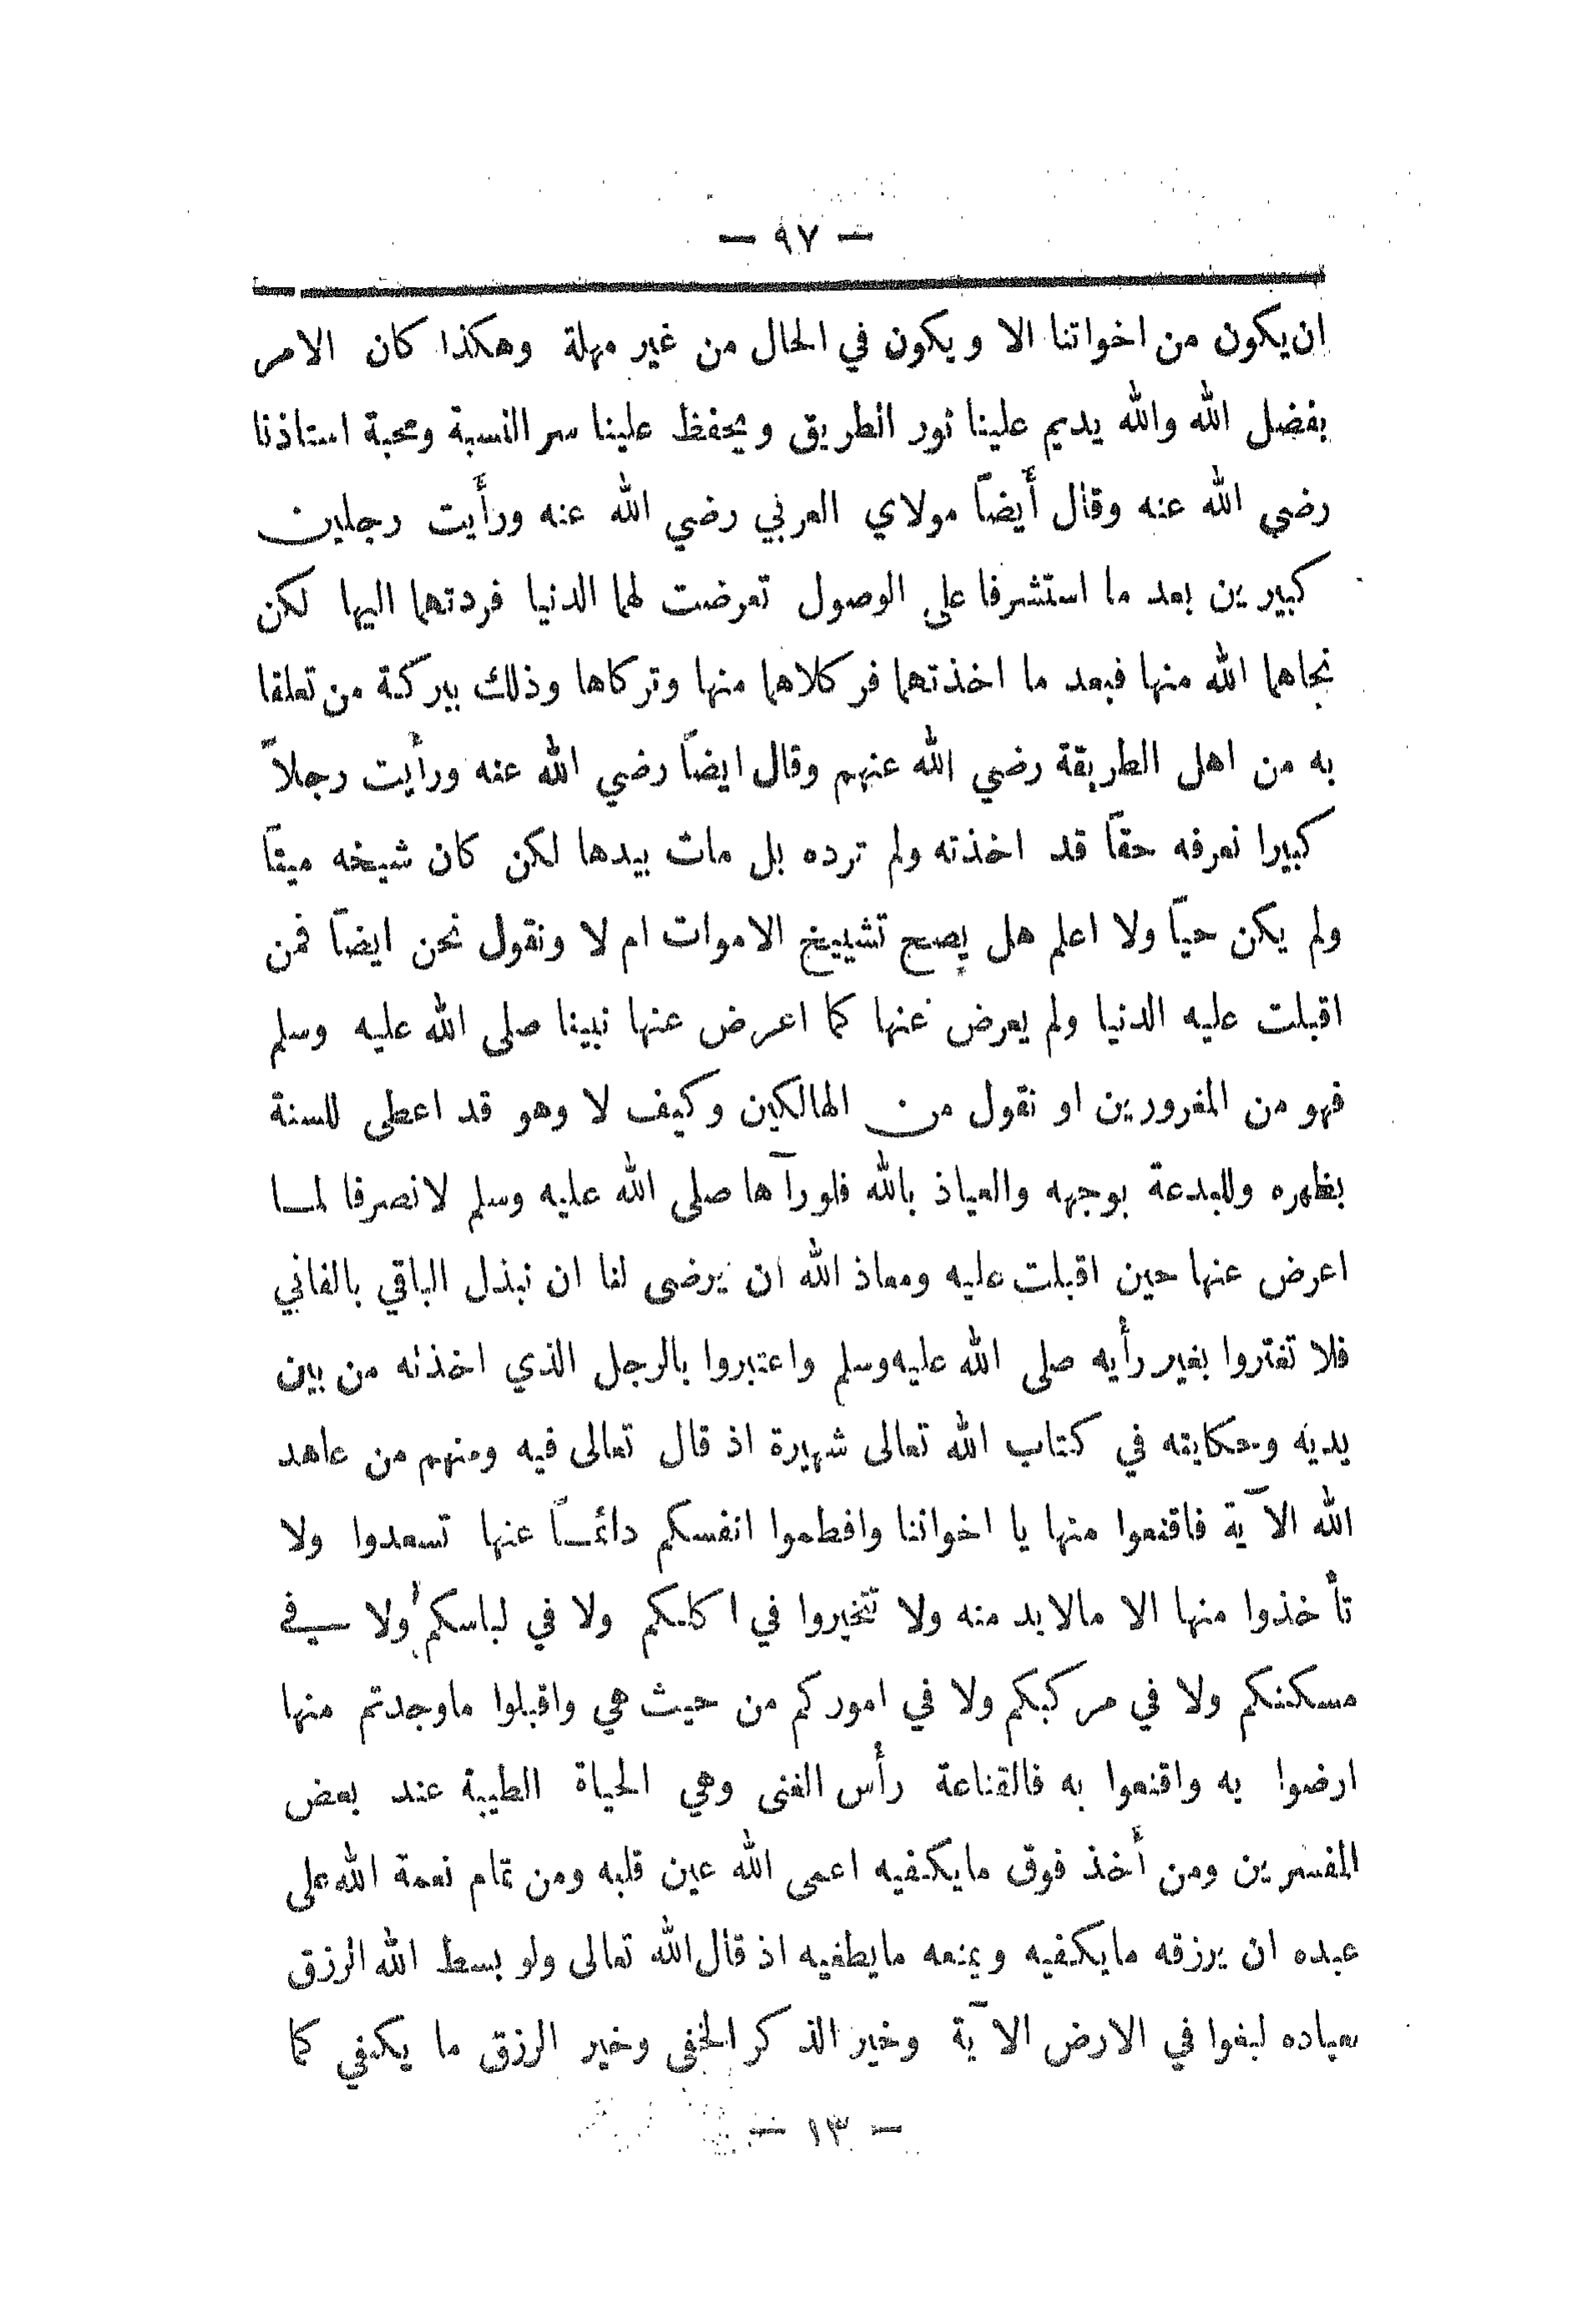 — ٩٧ —
ان يكون من اخواتنا الا ويكون في الحال من غير مهلة وهكذا كان الامر
بفضل الله والله يديم علينا نور الطريق ويحفظ علينا سر النسبة ومحبة استاذنا
رضي الله عنه وقال أيضاً مولاي العربي رضي الله عنه ورأيت رجلين
كبيرين بعد ما استشرفا على الوصول تعرضت لهما الدنيا فردتهما اليها لكن
نجاهما الله منها فبعد ما اخذتهما فركلاهما منها وتركاها وذلك ببركة من تعلقا
به من اهل الطريقة رضي الله عنهم وقال ايضاً رضي الله عنه ورأيت رجلاً
كبيرا نعرفه حقاً قد اخذته ولم ترده بل مات بيدها لكن كان شيخه ميتاً
ولم يكن حياً ولا اعلم هل يصح تشييخ الاموات ام لا ونقول نحن ايضاً فمن
اقبلت عليه الدنيا ولم يعرض عنها كما اعرض عنها نبينا صلى الله عليه وسلم
فهو من المغرورين او نقول من الهالكين وكيف لا وهو قد اعطى للسنة
بظهره وللبدعة بوجهه والعياذ بالله فلورآها صلى الله عليه وسلم لانصرفا لما
اعرض عنها حين اقبلت عليه ومعاذ الله ان يرضى لنا ان نبذل الباقي بالفاني
فلا تغتروا بغير رأيه صلى الله عليه وسلم واعتبروا بالرجل الذي اخذته من بين
يديه وحكايته في كتاب الله تعالى شهيرة اذ قال تعالى فيه ومنهم من عاهد
الله الآية فاقنعوا منها يا اخواننا وافطموا انفسكم دائماً عنها تسعدوا ولا
تأخذوا منها الا مالابد منه ولا تتخيروا في اكلكم ولا في لباسكم ولا في
مسكنكم ولا في مركبكم ولا في اموركم من حيث هي واقبلوا ماوجدتم منها
ارضوا به واقنعوا به فالقناعة رأس الغنى وهي الحياة الطيبة عند بعض
المفسرين ومن أخذ فوق مايكفيه اعمى الله عين قلبه ومن تمام نعمة الله على
عبده ان يرزقه مايكفيه ويمنعه مايطغيه اذ قال الله تعالى ولو بسط الله الرزق
لعباده لبغوا في الارض الآية وخير الذكر الخفى وخير الرزق ما يكفي كما
— ١٣ —